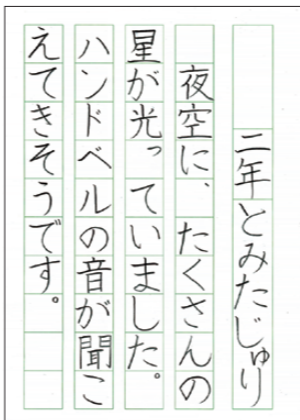 二年とみたじゅり
夜空に、たくさんの
星が光っていました。
ハンドベルの音が聞こ
えてきそうです。